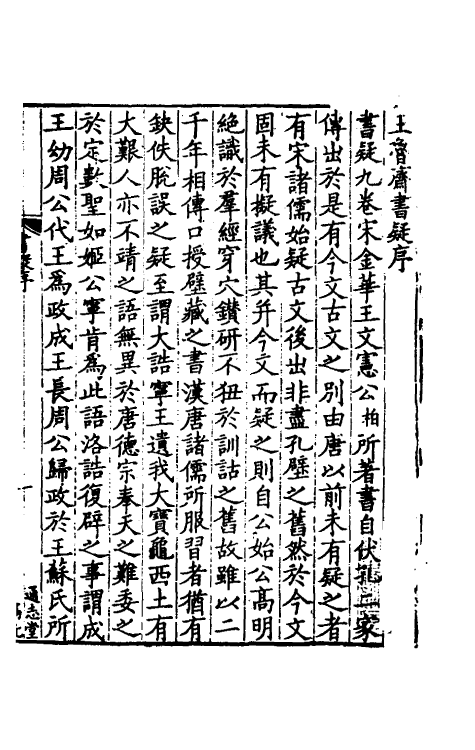 王魯齋書疑序
書疑九卷宋金華王文憲公柏所著書自伏孔二家
傳出於是有今文古文之別由唐以前未有疑之者
有宋諸儒始疑古文後出非盡孔壁之舊然於今文
固未有擬議也其并今文而疑之則自公始公高明
絶識於羣經穿穴鑚研不狃於訓詁之舊故雖以二
千年相傳口授壁藏之書漢唐諸儒所服習者猶有
缺佚脫誤之疑至謂大誥寧王遺我大寶龜西土有
大艱人亦不靖之語無異於唐德宗奉天之難委之
於定數聖如姬公寧肯爲此語洛誥復辟之事謂成
王幼周公代王爲政成王長周公歸政於王蘇氏所
通志堂